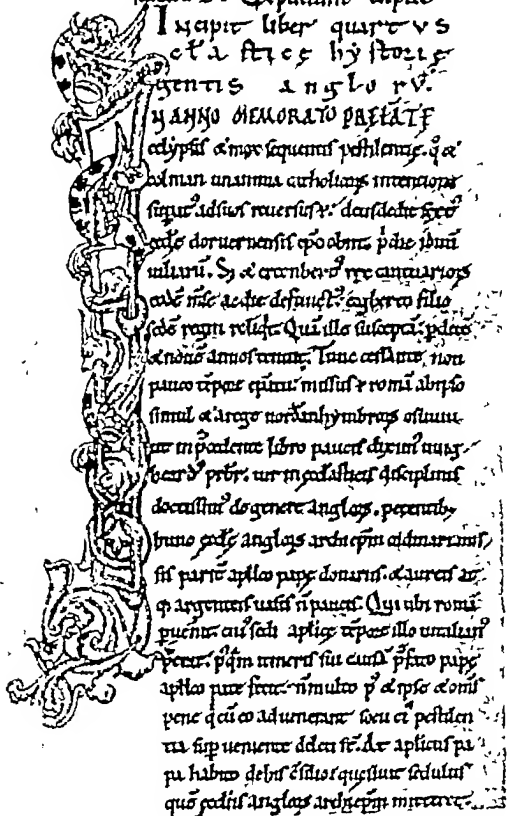 Incipit liber quartus
eccl̄astice hystorie
gentis anglorū.
IN ANNO MEMORATO PREFATE
eclypsis & mox sequentis pestilentię. q̊ &
colman unanima catholicoꝝ intentione
supatus ad suos reversus ē. deusdedit sext᷒
eccl̄ę doruernensis ep̄c obiit. p̄die iduū
iuliarū. Sȝ & erconbert᷒ rex cantuarioꝝ
eodē m̄se ac die defunct᷒. egberto filio
sedē regni reliq̇t. Quā ille susceptā. p dece
& nouē annos tenuit. Tunc cessante non
pauco tēpore ep̄atu. missus ē romā ab ipso
simul & a rege nordanhymbroꝝ osuuiu.
ut in p̄cedente libro paucis diximꝰ uuig-
heard᷒ pr̄br. uir in eccl̄asticis disciplinis
doctissimꝰ de genere angloꝝ. petentibꝫ
hunc eccl̄ę angloꝝ archiep̄m ordinari. mis-
sis parit᷒ apl̄ico papę donariis. & aureis at-
q; argenteis uasis ñ paucis. Qui ubi romā
puenit. cuiꝰ sedi aplicę tēpore illo uitalianꝰ
p̄erat. p᷒q̄m itineris sui causā p̄fato papę
apl̄ico patefecit. ñ multo p᷒ & ipse & om̄s
pene qui cū eo aduenerant socii ei᷒ pestilen
tia supueniente deleti st̄. At aplicus pa
pa habito de his c̄silio. quesiuit sedulus
quē eccl̄iis angloꝝ archiep̄m mitteret.